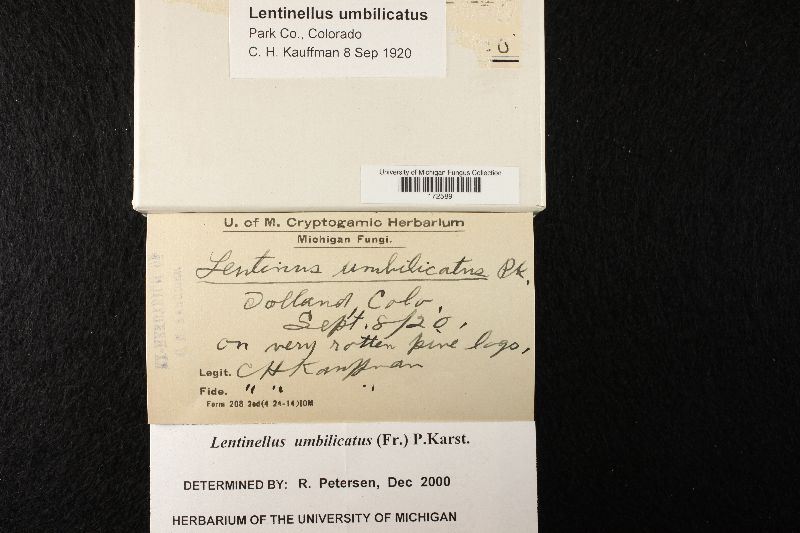 Lentinellus umbilicatus
Park Co., Colorado
C. H. Kauffman 8 Sep 1920
O.
University of Michigan Fungus Collection
172589
U. of M. Cryptogamic Herbarium
Michigan Fungi.
Lentinus umbilicatus Pk.
Tolland, Colo.
Sept. 8/20,
on very rotten pine logs,
Legit. C H Kauffman
Fide. " " "
Form 208 2ed(4 24-14)10M
Lentinellus umbilicatus (Fr.) P.Karst.
DETERMINED BY: R. Petersen, Dec 2000
HERBARIUM OF THE UNIVERSITY OF MICHIGAN